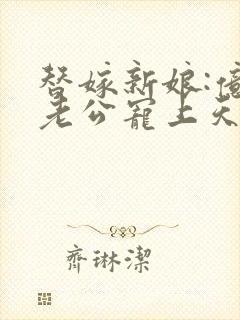 替嫁新娘:億
老公寵上天
齊琳潔